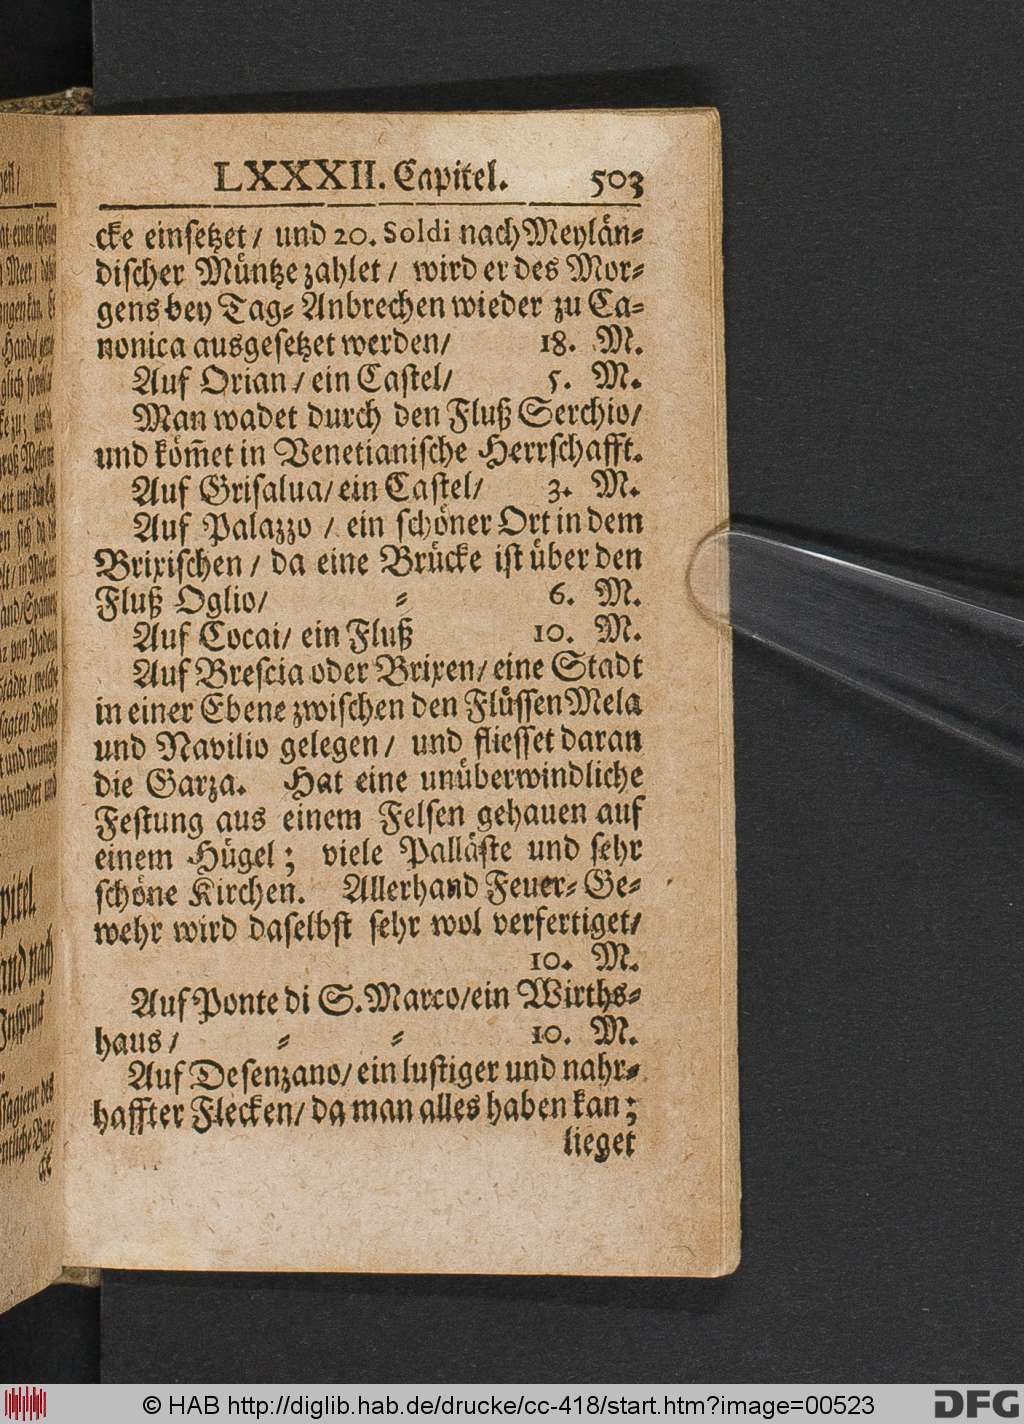 LXXXII. Capitel. 503
cke einsetzet/ und 20. Soldi nach Meylän⸗
discher Müntze zahlet/ wird er des Mor⸗
gens bey Tag⸗Anbrechen wieder zu Ca⸗
nonica ausgesetzet werden/ 18. M.
Auf Orian/ ein Castel/ 5. M.
Man wadet durch den Fluß Serchio/
und köm̃et in Venetianische Herrschafft.
Auf Grisalua/ ein Castel/ 3. M.
Auf Palazzo/ ein schöner Ort in dem
Brixischen/ da eine Brücke ist über den
Fluß Oglio/ ⸗ 6. M.
Auf Cocai/ ein Fluß 10. M.
Auf Brescia oder Brixen/ eine Stadt
in einer Ebene zwischen den Flüssen Mela
und Navilio gelegen/ und fliesset daran
die Garza. Hat eine unüberwindliche
Festung aus einem Felsen gehauen auf
einem Hügel; viele Palläste und sehr
schöne Kirchen. Allerhand Feuer⸗Ge⸗
wehr wird daselbst sehr wol verfertiget/
10. M.
Auf Ponte di S. Marco/ ein Wirths⸗
haus/ ⸗ ⸗ 10. M.
Auf Desenzano/ ein lustiger und nahr⸗
haffter Flecken/ da man alles haben kan;
lieget
© HAB http://diglib.hab.de/drucke/cc-418/start.htm?image=00523
DFG